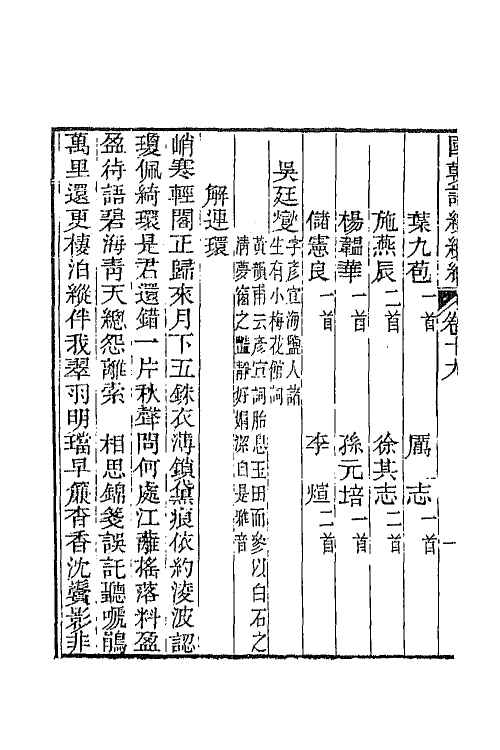 國朝詞綜續編 卷十九 一
葉九苞一首 厲志一首
施燕辰二首 徐其志二首
楊韞華一首 孫元培一首
儲憲良一首 李煊二首
吳廷燮字彥宣海鹽人諸
生有小梅花館詞
黃韻甫云彥宣詞胎息玉田而參以白石之
清夢窗之豔靜好娟潔自是雅音
解連環
峭寒輕閣正歸來月下五銖衣薄鎖黛痕依約淩波認
瓊佩綺環是君還錯一片秋聲問何處江蘺搖落料盈
盈待語碧海靑天總怨離索 相思錦箋誤託聽嗁鵑
萬里還更棲泊縱伴我翠雨明璫早簾杳香沈鬢影非